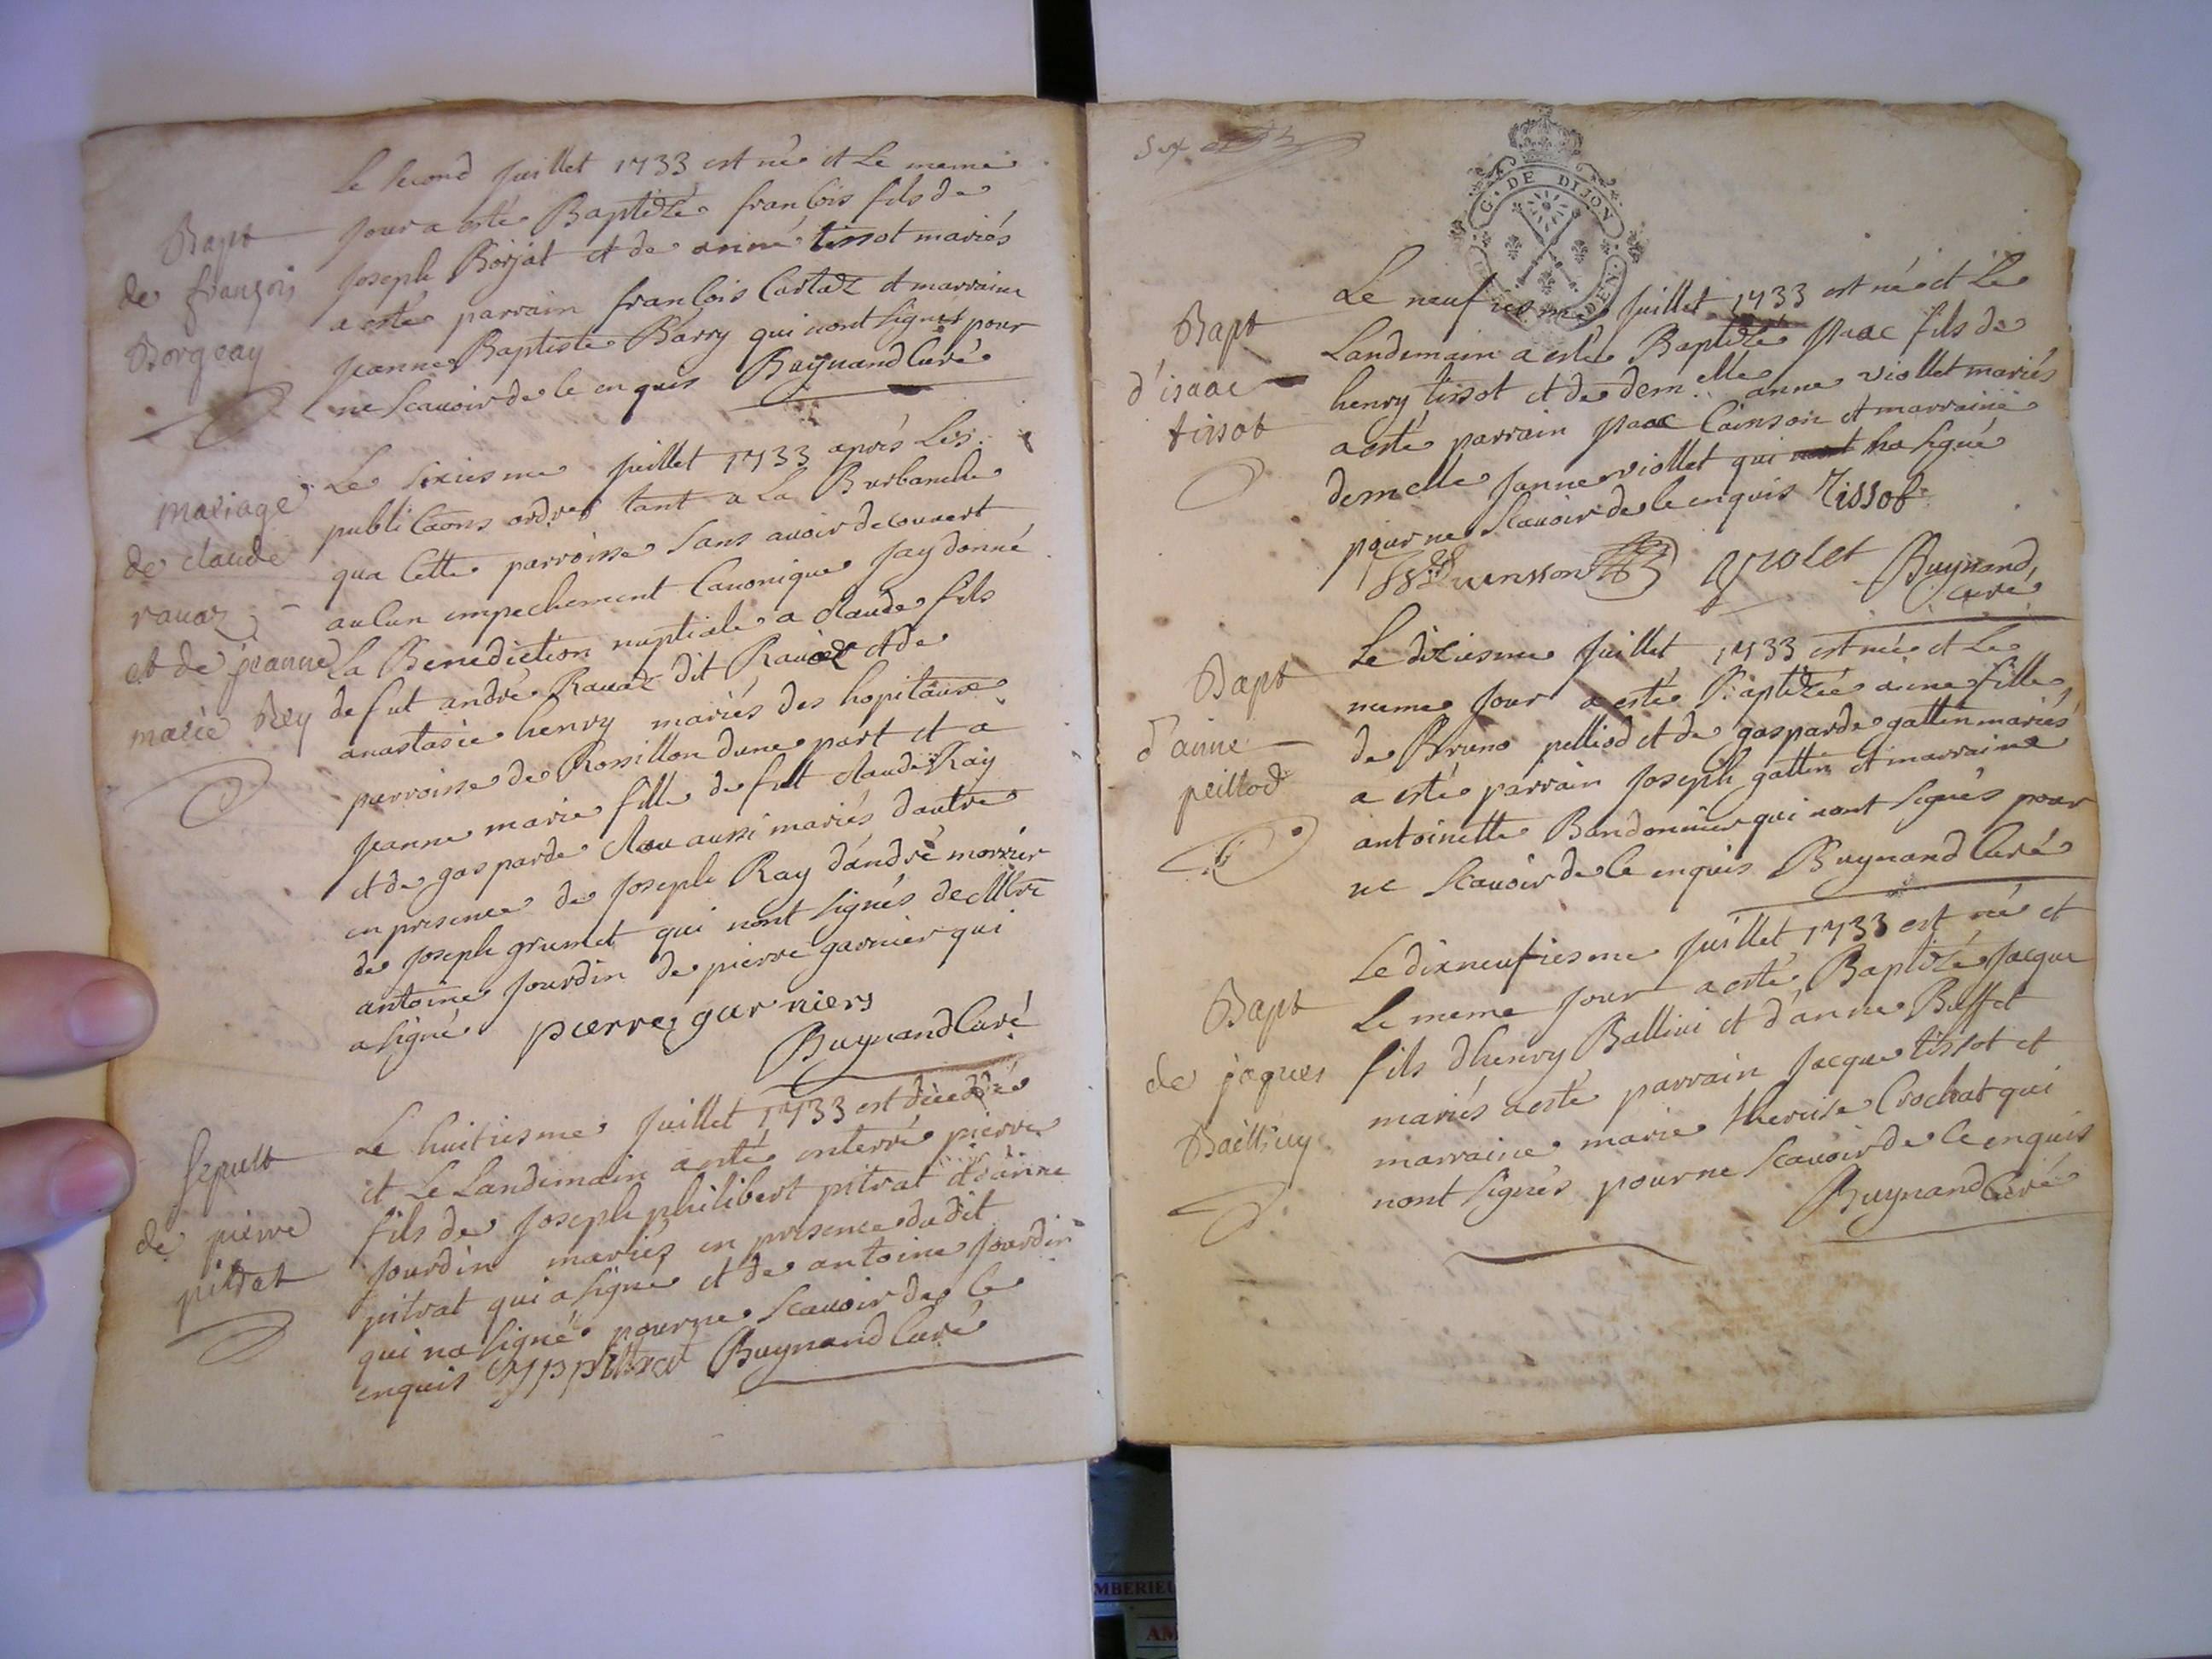 Le second Juillet 1733 est né et Le meme
Jour a esté Baptizé francois fils de
Joseph Borjat et de anne tissot mariés
a esté parrain francois Cartaz et marraine
jeanne Baptiste Barry qui nont signés pour
ne scauoir de ce enquis Buynand Curé
Bapt
de françois
Borgeay
Le sixiesme Juillet 1733 après Les
publicaons ordres tant a La Burbanche
qua Cette parroisse sans auoir decouuert
aucun empechement Canonique Jay donné
La Benediction nuptiale a claude fils
de fut andré Rauaz dit et de
anastasie henry mariés des hopitaux
parroisse de Rossillon dune part et a
jeanne marie fille de fut claude Ray
et de gasparde clau aussi mariés dautre
en presence de Joseph Ray dandré morrier
de Joseph grumet qui nont signés de Mre
antoine Jourdin de pierre garnier qui
a signé pierre garniers
Buynand Curé
mariage
de claude
rauaz
et de jeanne
marie Rey
Le huitiesme Juillet 1733 est decedé
et Le Landemain a esté enterré pierre
fils de Joseph philibert pitrat et danne
Jourdin mariés en presence dudit
pitrat qui a signé et de antoine Jourdin
qui na signé pour ne scauoir de ce
enquis Buynand Curé
sepult
de pierre
pitrat
G. DE DIJON
Le neufiesme Juillet 1733 est né et Le
Landemain a esté Baptizé Isaac fils de
henry tissot et de demelle anne viollet mariés
a esté parrain Isaac Cuinson et marraine
demelle Janne viollet qui na signé
pour ne scauoir de ce enquis Tissot
Buynand
curé
Bapt
d'isaac
tissot
Le dixiesme Juillet 1733 est née et Le
meme Jour a esté Baptizée anne fille
de Bruno pelliod et de gasparde gattin mariés
a esté parrain Joseph gattin et marraine
antoinette Bandonnier qui nont signés pour
ne scauoir de ce enquis Buynand Curé
Bapt
d'anne
peillod
Le dixneufiesme Juillet 1733 est né et
Le meme Jour a esté Baptizé Jacque
fils dhenry Ballivi et d'anne Buffet
mariés a esté parrain Jacque tissot et
marraine marie therese Crochat qui
nont signés pour ne scauoir de ce enquis
Buynand Curé
Bapt
de jaques
MBERIEU
AM